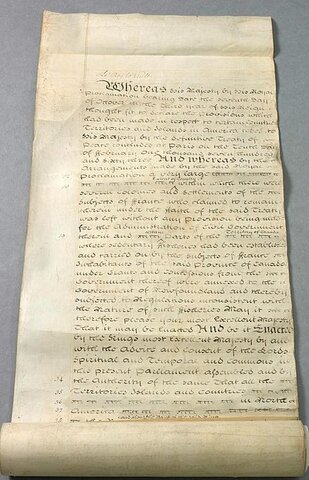 Whereas his Majesty by his Royal
Proclamation bearing date the seventh Day
of October in the Third Year of his Reign
thought fit to declare the Provisions which
had been made in respect to certain Countries
Territories and Islands in America ceded to
his Majesty by the definitive Treaty of
Peace concluded at Paris on the Tenth day
of February One thousand seven hundred
and sixty three And whereas by the
Arrangements made by the said Royal
Proclamation a very large
within which there were
several Colonies and Settlements of the
Subjects of France who claimed to remain
therein under the Faith of the said Treaty
was left without any Provision being made
for the Administration of Civil Government
therein and
where sedentary Fisheries had been established
and carried on by the Subjects of France
Inhabitants of the said Province of Canada
under Grants and Concessions from the
Government thereof were annexed to the
Government of Newfoundland and thereby
subjected to Regulations inconsistent with
the Nature of such Fisheries May it
therefore please your most Excellent Majesty
That it may be Enacted And be it Enacted
by the Kings most Excellent Majesty by and
with the Advice and Consent of the Lords
Spiritual and Temporal and Commons in
this present Parliament assembled and by
34 the Authority of the same That all the
35 Territories Islands and Countries
36 in North
37 America